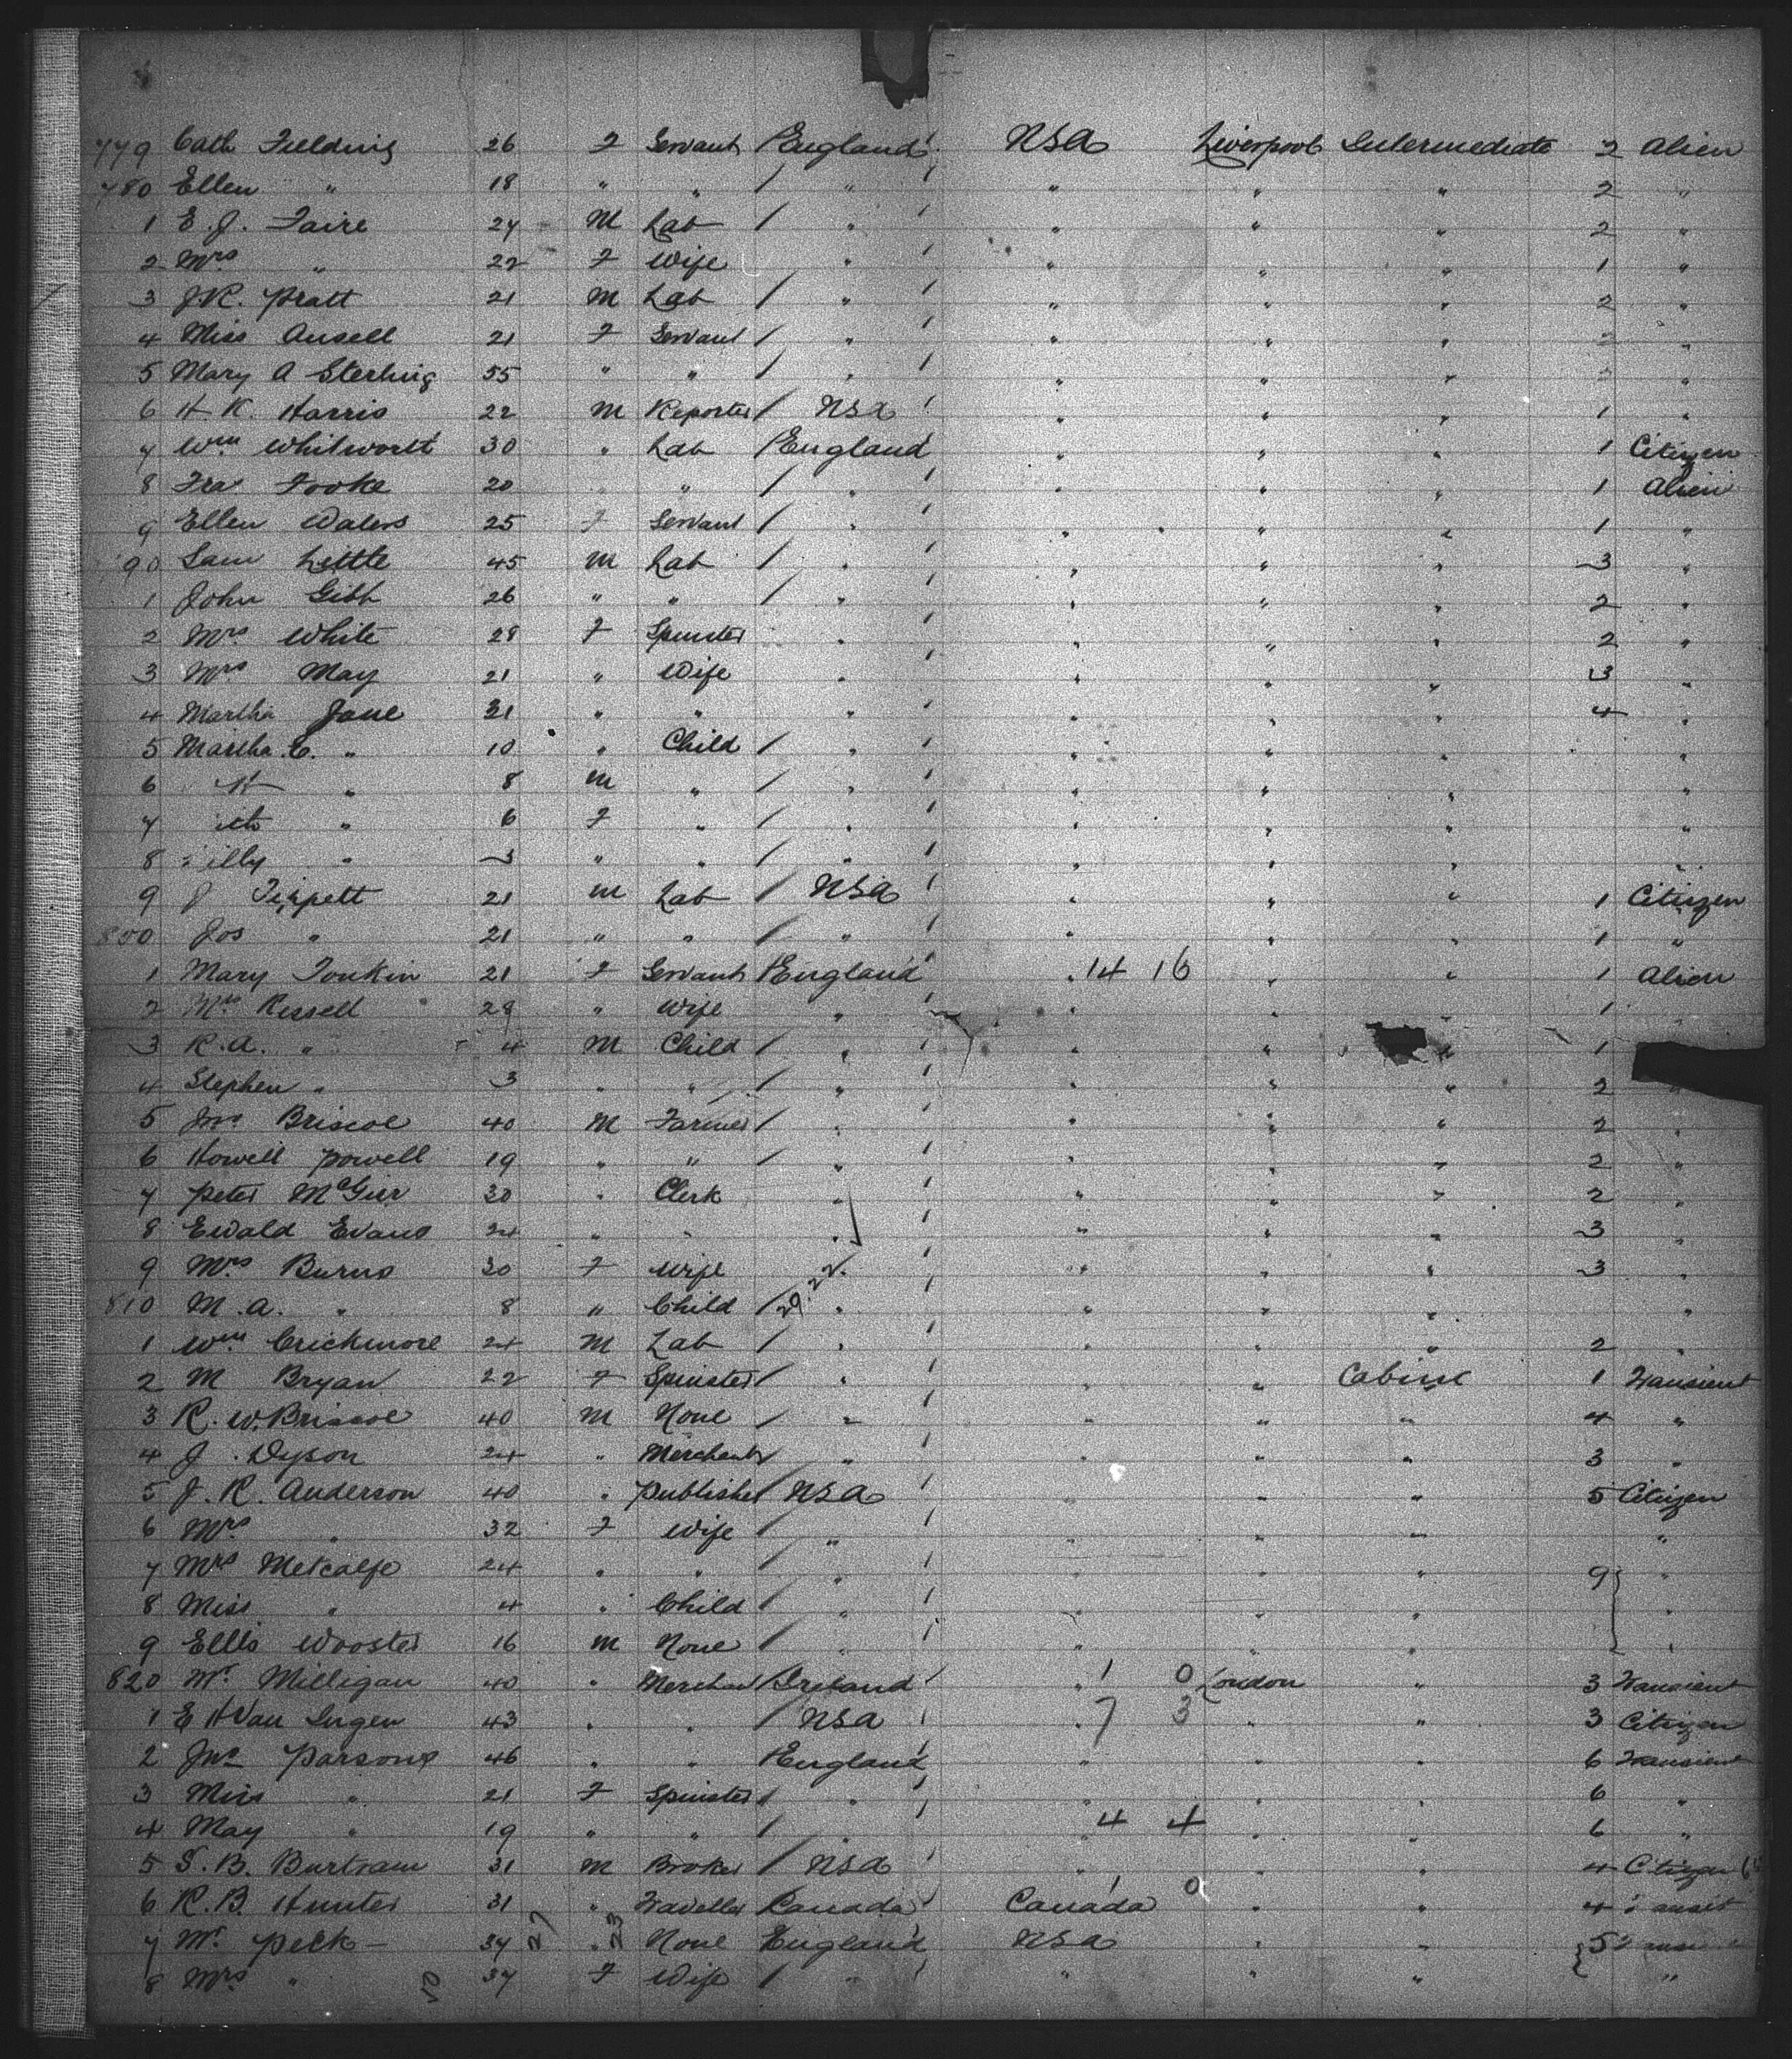 779 Cath Fielding 26 F Servant / England / USA Liverpool Intermediate 2 Alien
780 Ellen " 18 " " / " / " " " 2 "
1 E. J. Faire 24 M Lab / " / " " " 2 "
2 Mrs " 22 F Wife " / " " " 1 "
3 J.R. Pratt 21 M Lab / " / " " " 2 "
4 Miss Ansell 21 F Servant / " / " " " 2 "
5 Mary A Sterling 55 " " / " / " " "
6 H K. Harris 22 M Reporter / USA / " " " 1 "
7 Wm Whitworth 30 " Lab / England " " " 1 Citizen
8 Fra Fooke 20 " " / " / " " " 1 Alien
9 Ellen Waters 25 F Servant / " / " " " 1 "
90 Sam Little 45 M Lab / " / " " " 3 "
1 John Gibb 26 " " / " / " " " 2 "
2 Mrs White 28 F Spinster " / " " " 2 "
3 Mrs May 21 " Wife " / " " " 3 "
4 Martha Jane 31 " " " / " " " 4 "
5 Martha E. " 10 " Child / " / " " " "
6 H " 8 M " / " / " " " "
7 " 6 F " / " / " " " "
8 illy " 3 " " / " / " " " "
9 J Tippett 21 M Lab / USA / " " " 1 Citizen
800 Jos " 21 " " / " / " " " 1 "
1 Mary Tonkin 21 F Servant / England " 14 16 " " 1 Alien
2 Mrs Kessell 28 " Wife " / " " " 1
3 R.A. " 4 M Child / " / " " " 1
4 Stephen " 3 " " / " / " " " 2 "
5 Jno Briscoe 40 M Farmer / " / " " " 2 "
6 Howell Powell 19 " " / " / " " " 2 "
7 Peter McGier 30 " Clerk " / " " " 2 "
8 Ewald Evans 24 " " " / " " " 3 "
9 Mrs Burns 30 F Wife " / " " " 3 "
810 M.A. " 8 " Child / 29.22 " / " " " "
1 Wm Crickmore 24 M Lab / " / " " " 2 "
2 M Bryan 22 F Spinster / " / " " Cabine 1 Transient
3 R. W. Briscoe 40 M None / " / " " " 4 "
4 J. Dyson 24 " Merchant / " / " " " 3 "
5 J. R. Anderson 40 " Publisher / USA / " " 5 Citizen
6 Mrs " 32 F Wife / " / " " " "
7 Mrs Metcalfe 24 " " / " / " " " 9 "
8 Miss " 4 " Child / " / " " " "
9 Ellis Wooster 16 M None / " / " " " "
820 Mr Milligan 40 " Merchant / Ireland / " 1 0 London " 3 Transient
1 E H Van Ingen 43 " " / USA / " 7 3 " " 3 Citizen
2 Jno Parsons 46 " " / England " " " 6 Transient
3 Miss " 21 F Spinster / " / " " " 6 "
4 May " 19 " " / " " 4 4 " " 6 "
5 S. B. Bartram 31 M Broker / USA " " " 4 Citizen
6 R. B. Hunter 31 " Traveller / Canada / Canada 1 0 " " 4
7 Mr Peck 34 27 " 23 None England / USA " " 5
8 Mrs " 10 34 F Wife / " / " " " "